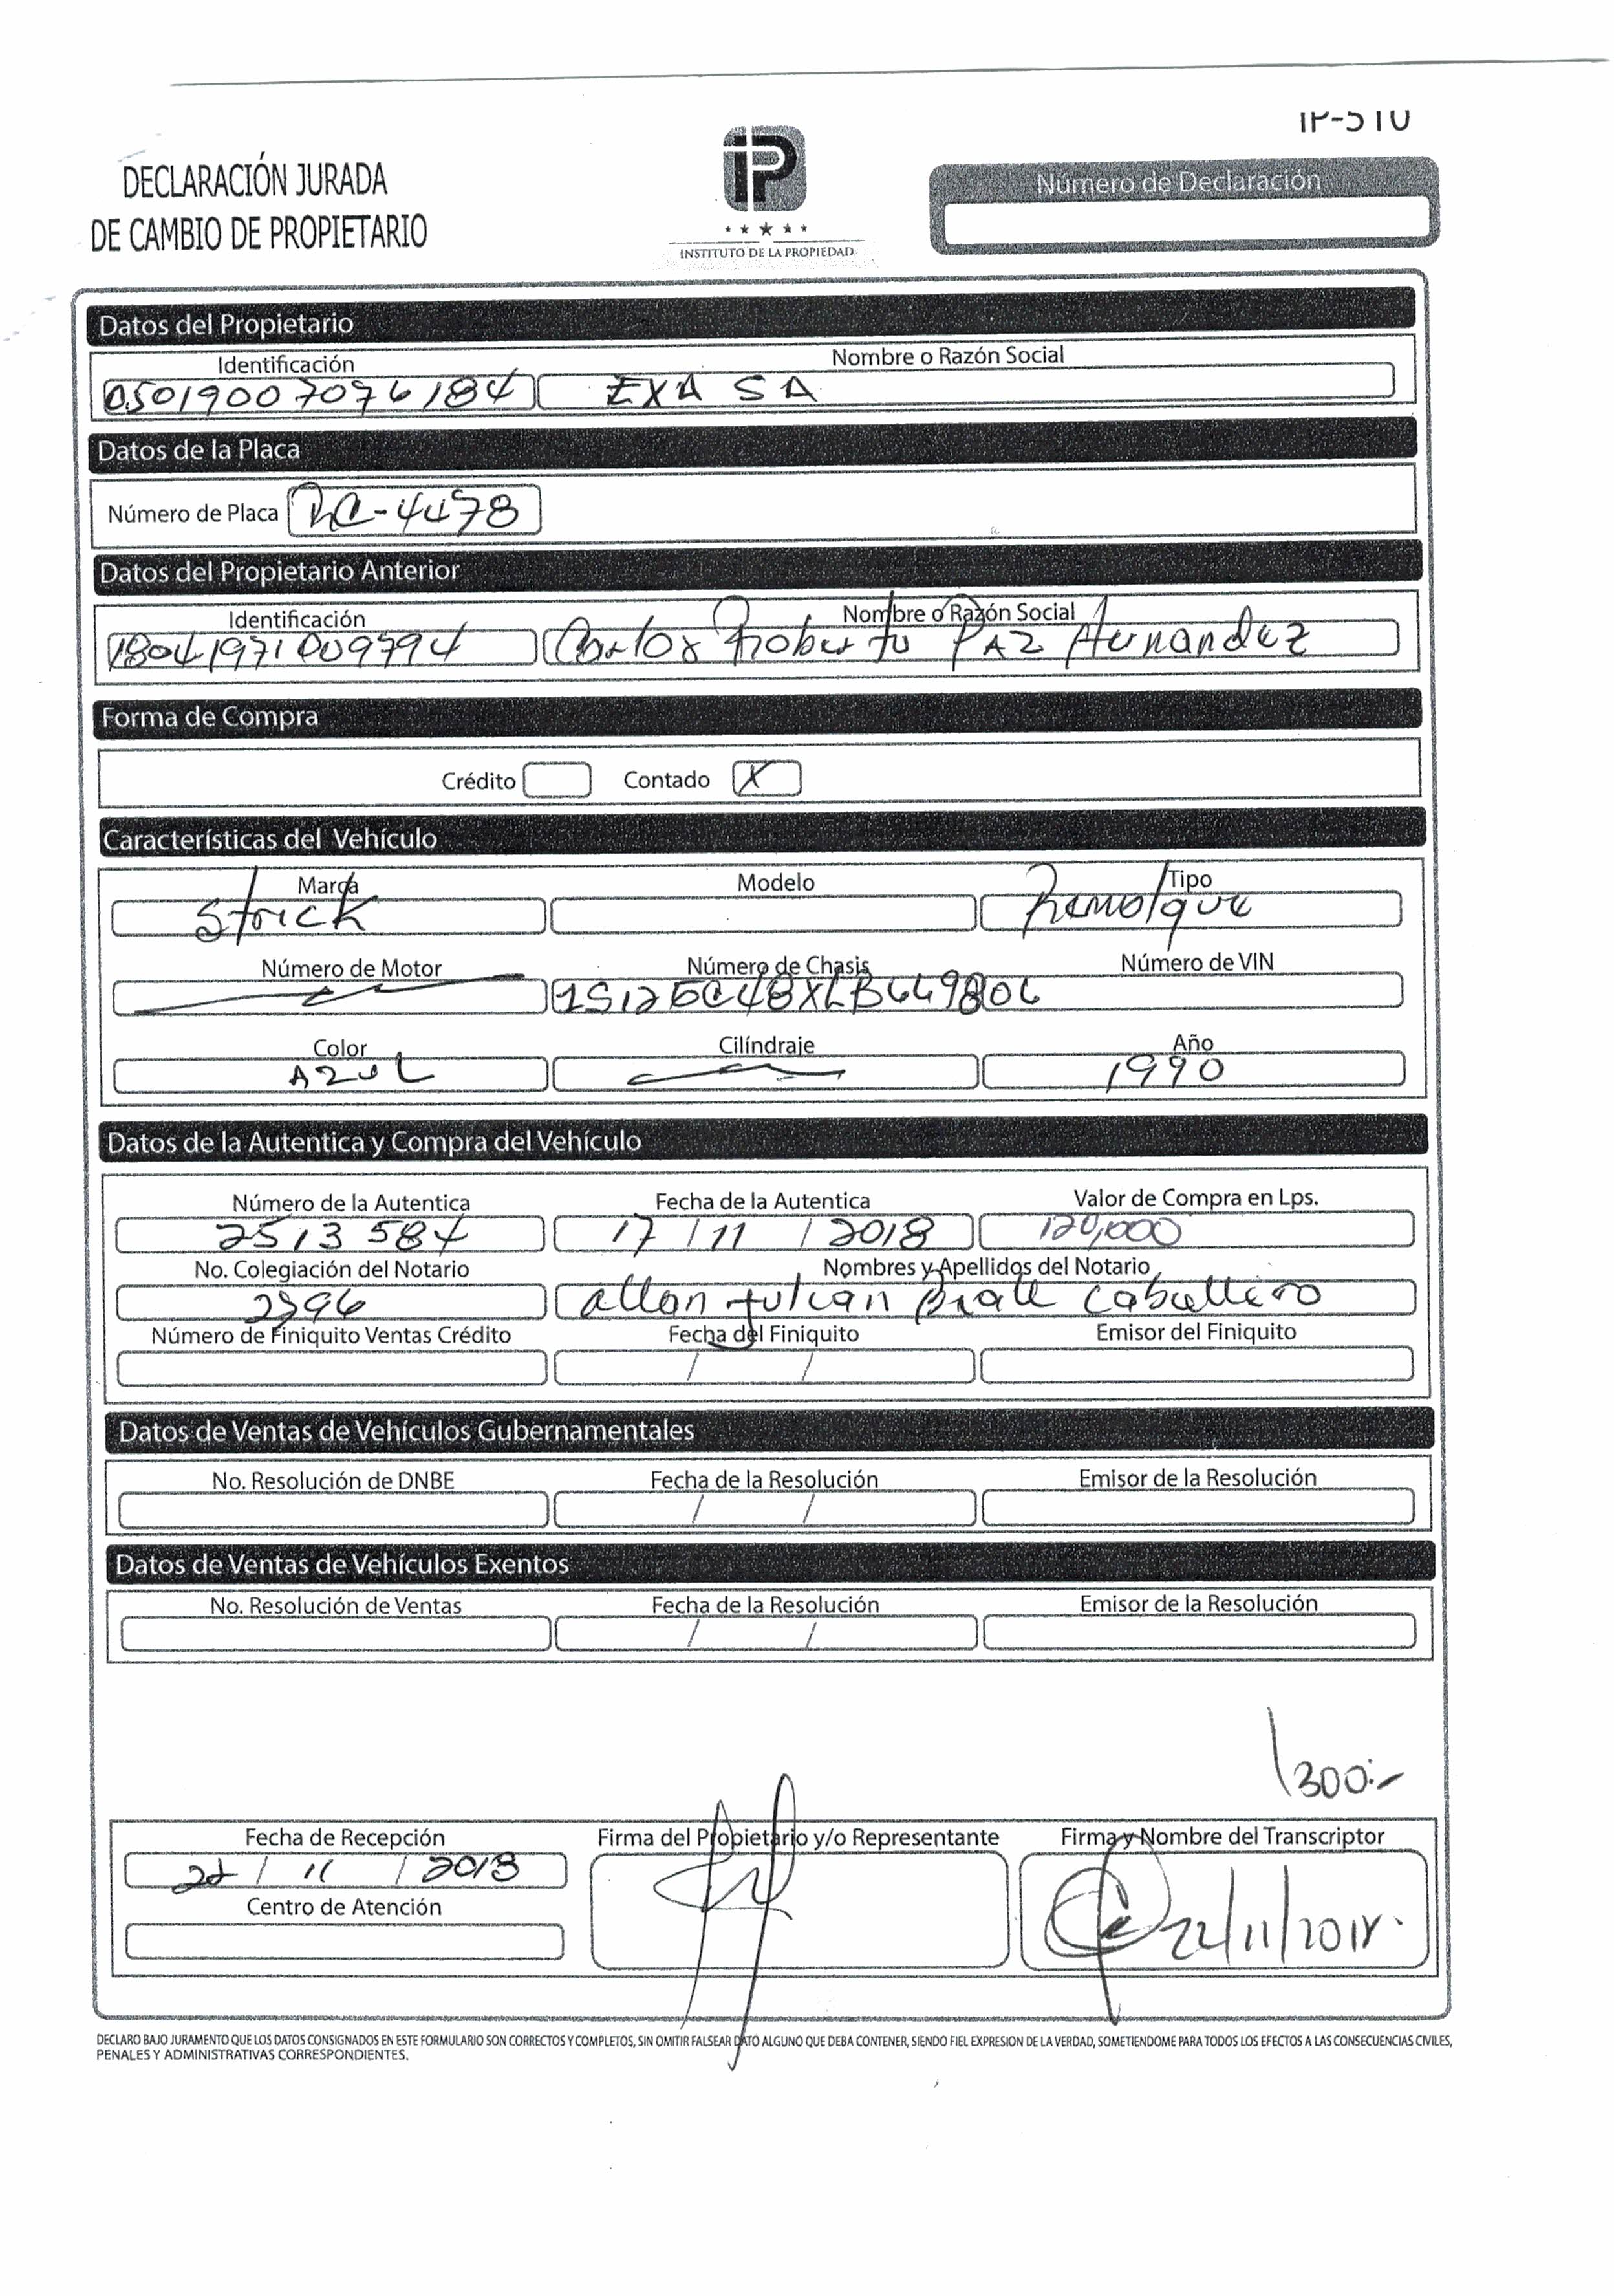 IP-510
DECLARACIÓN JURADA
DE CAMBIO DE PROPIETARIO
iP
INSTITUTO DE LA PROPIEDAD
Número de Declaración
Datos del Propietario
Identificación Nombre o Razón Social
05019007076184 EXA SA
Datos de la Placa
Número de Placa RC-4478
Datos del Propietario Anterior
Identificación Nombre o Razón Social
Carlos Roberto PAZ Hernandez
Forma de Compra
Crédito Contado X
Características del Vehículo
Marca Modelo Tipo
Strick Remolque
Número de Motor Número de Chasis Número de VIN
Color Cilíndraje Año
AZUL 1990
Datos de la Autentica y Compra del Vehículo
Número de la Autentica Fecha de la Autentica Valor de Compra en Lps.
2513584 17/11/2018 120,000
No. Colegiación del Notario Nombres y Apellidos del Notario
allan Julian Caballero
Número de Finiquito Ventas Crédito Fecha del Finiquito Emisor del Finiquito
/ /
Datos de Ventas de Vehículos Gubernamentales
No. Resolución de DNBE Fecha de la Resolución Emisor de la Resolución
/ /
Datos de Ventas de Vehículos Exentos
No. Resolución de Ventas Fecha de la Resolución Emisor de la Resolución
/ /
300.-
Fecha de Recepción Firma del Propietario y/o Representante Firma y Nombre del Transcriptor
22/11/2018
Centro de Atención
22/11/2018.
DECLARO BAJO JURAMENTO QUE LOS DATOS CONSIGNADOS EN ESTE FORMULARIO SON CORRECTOS Y COMPLETOS, SIN OMITIR FALSEAR DATO ALGUNO QUE DEBA CONTENER, SIENDO FIEL EXPRESION DE LA VERDAD, SOMETIENDOME PARA TODOS LOS EFECTOS A LAS CONSECUENCIAS CIVILES,
PENALES Y ADMINISTRATIVAS CORRESPONDIENTES.